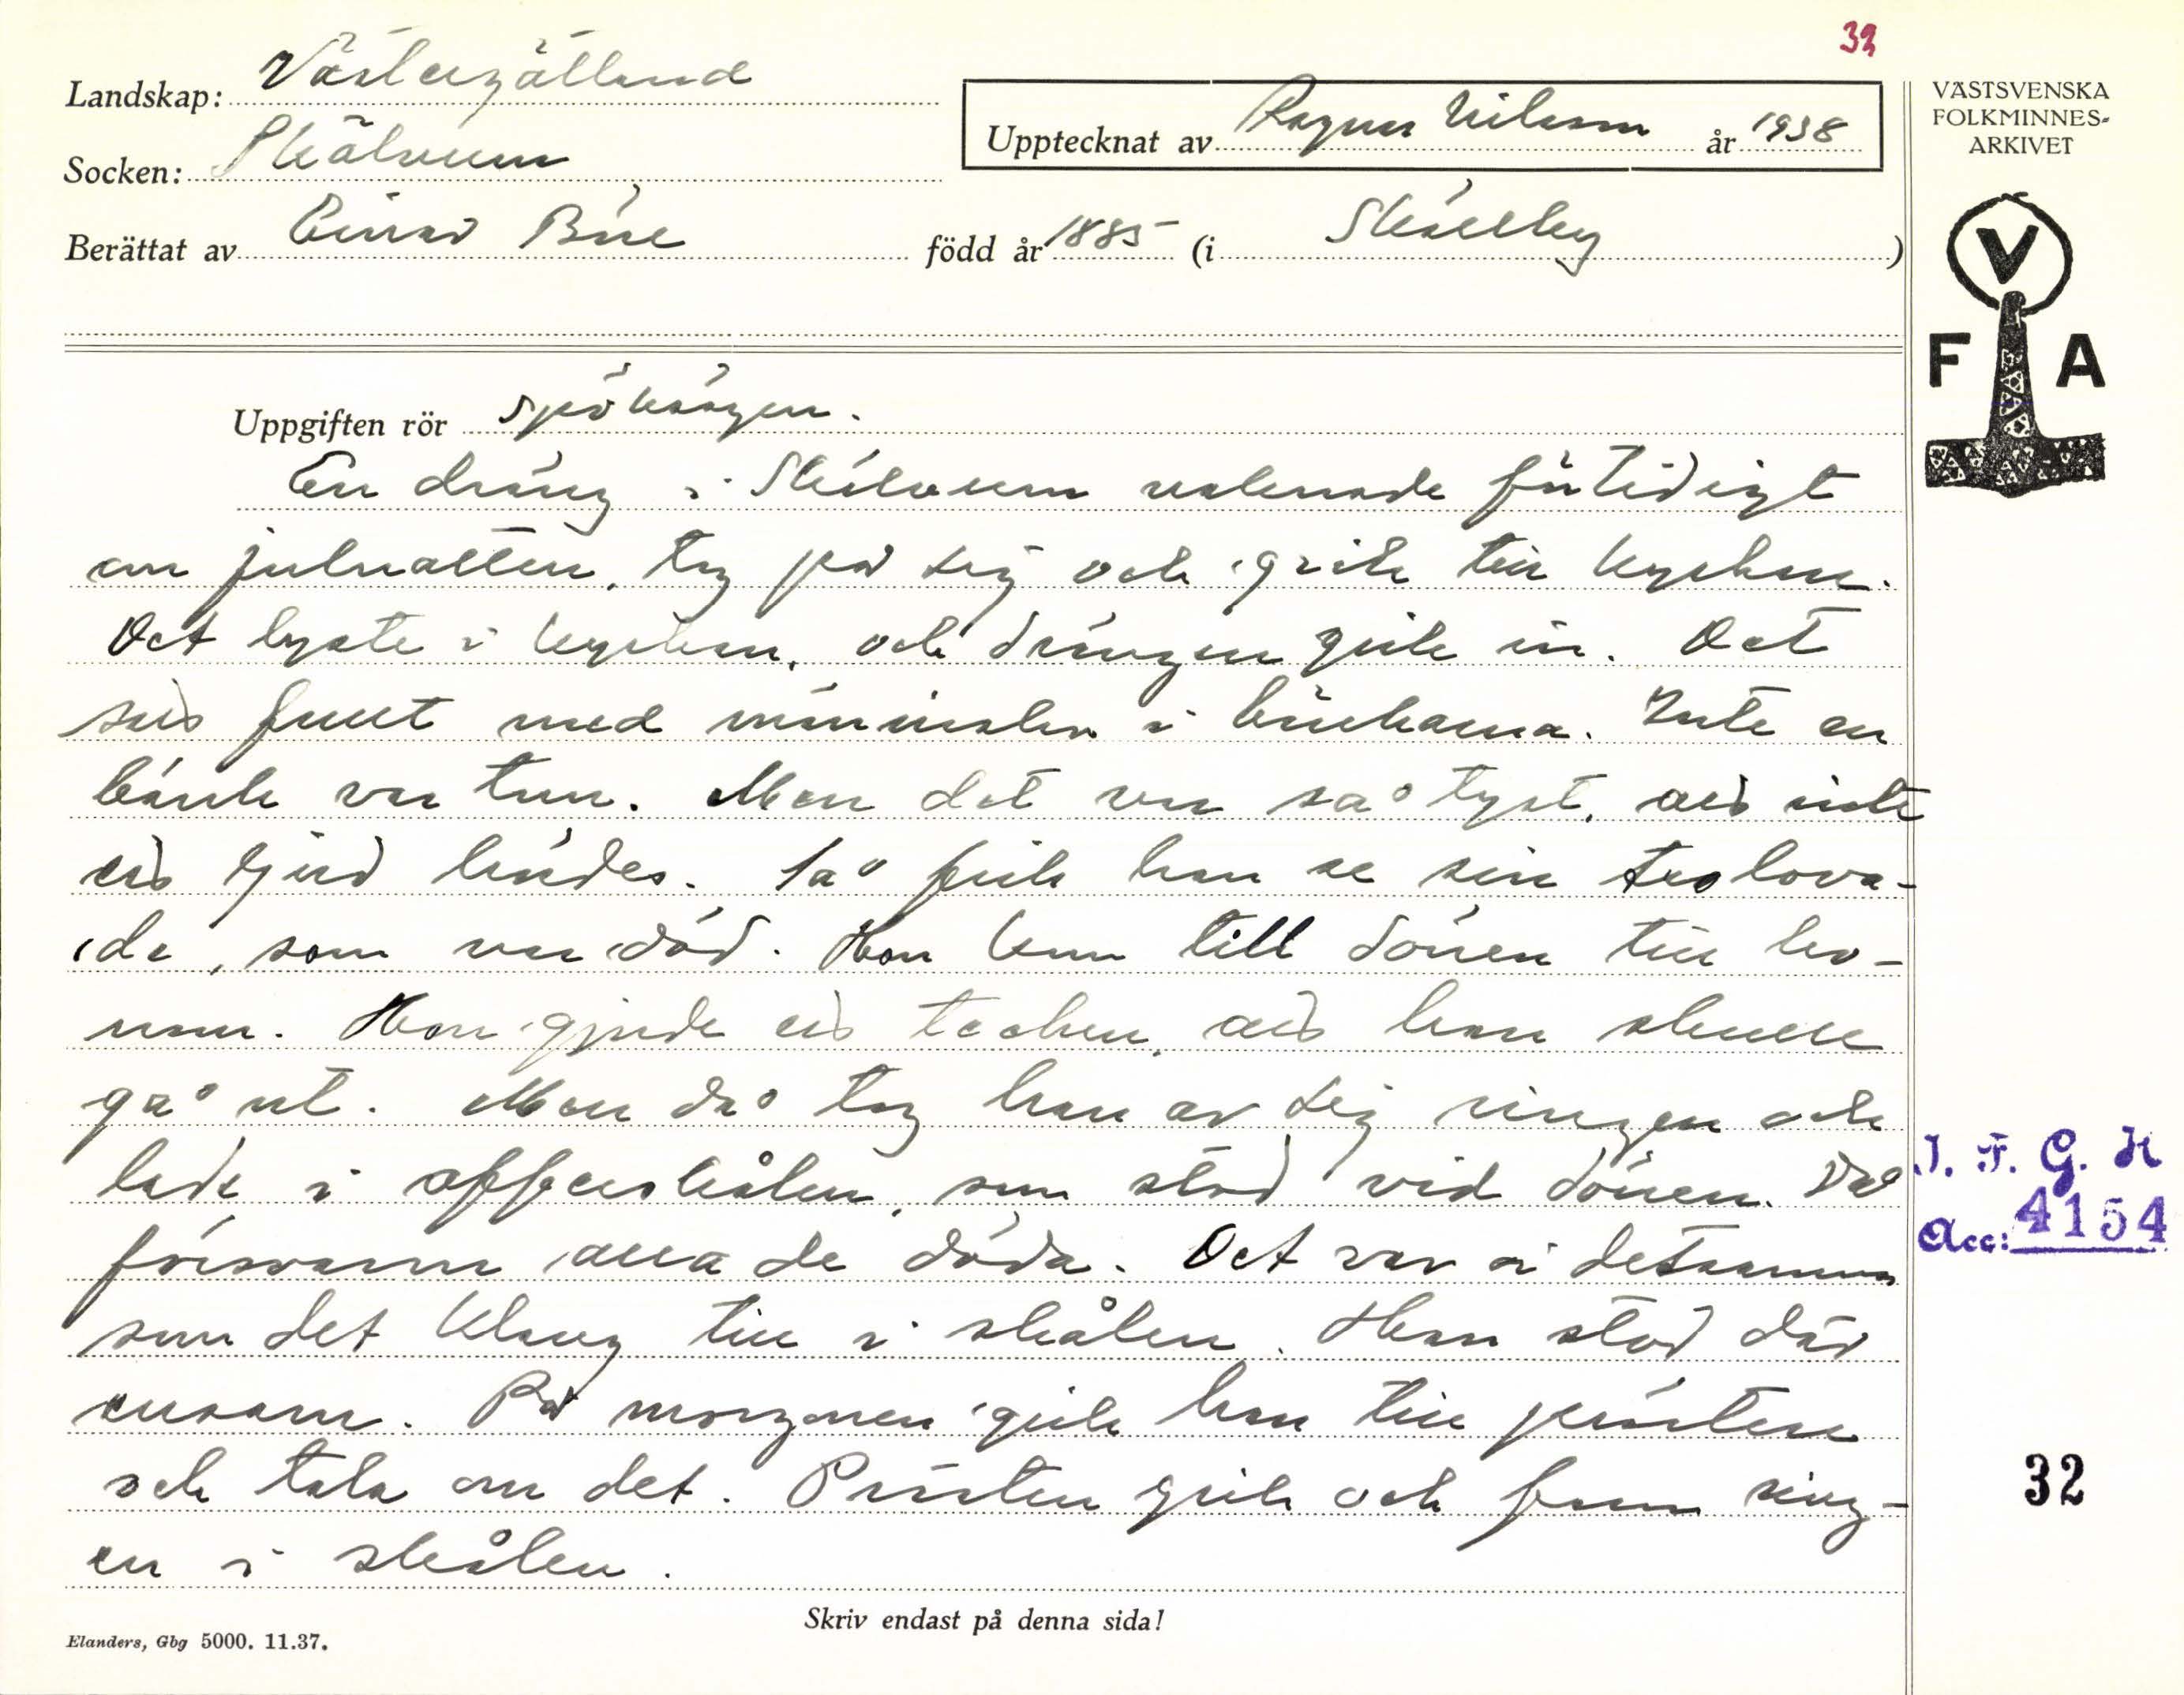 32
Landskap: Västergötland
Socken: Skälvum
Berättat av Einar Bäck
Upptecknat av Ragnar Nilsson år 1938
född år 1885 (i Skälvby)
VÄSTSVENSKA
FOLKMINNES-
ARKIVET
V
F A
Uppgiften rör
En dräng i Skälvum vaknade för tidigt
om julnatten, tog på sig och gick till kyrkan.
Det lyste i kyrkan, och drängen gick in. Det
satt fullt med människor i bänkarna. Inte en
bänk var tom. Men det var så tyst, att inte
ett ljud hördes. Så fick han se sin trolova-
de, som var död. Hon kom till dörren till ho-
nom. Hon gjorde ett tecken, att han skulle
gå ut. Men då tog han av sig ringen och
lade i offerskålen, som stod vid dörren. Då
försvann alla de döda. Det var i detsamma
som det klang till i skålen. Han stod där
ensam. På morgonen gick han till prästen
och tala om det. Prästen gick och fann ring-
en i skålen.
I. F. G. H
Acc: 4154
32
Skriv endast på denna sida!
Elanders, Gbg 5000. 11.37.